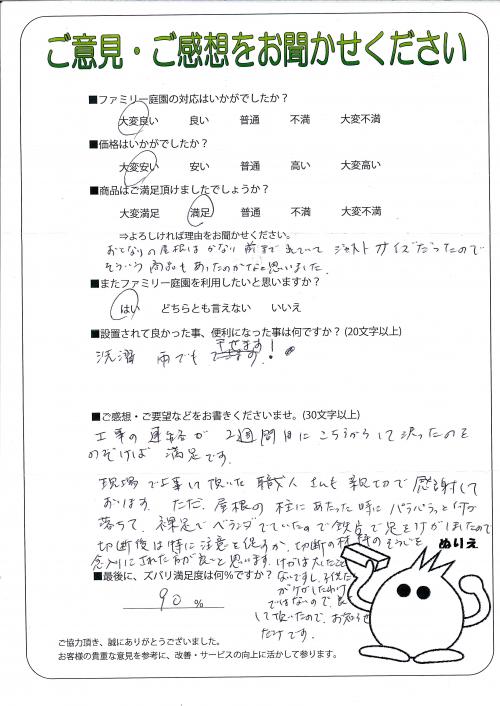 ご意見・ご感想をお聞かせください
■ファミリー庭園の対応はいかがでしたか？
大変良い 良い 普通 不満 大変不満
■価格はいかがでしたか？
大変安い 安い 普通 高い 大変高い
■商品はご満足頂けましたでしょうか？
大変満足 満足 普通 不満 大変不満
⇒よろしければ理由をお聞かせください。
おとなりの屋根はかなり前まで出ていて ジャストサイズだったので
そういう商品もあったのかなと思いました。
■またファミリー庭園を利用したいと思いますか？
はい どちらとも言えない いいえ
■設置されて良かった事、便利になった事は何ですか？(20文字以上)
洗濯 雨でも 干せます！
■ご感想・ご要望などをお書きくださいませ。(30文字以上)
工事の連絡が 2週間目にこちらからして決ったのを
のぞけば 満足です。
現場で工事して頂いた 職人さんも 親切で 感謝して
おります。ただ、屋根の柱にあたった時に パラパラっと
落ちて、裸足でベランダでていたので 鉄片で足をけがしましたので
切断後は特に注意を促すか、切断の材料のそうじを
念入りにされた方が良いと思います。けがは大したこと
ないですし、子供た
がケガしたわけ
ではないので、良
して頂いたので、お知らせ
だけです。
ぬりえ
■最後に、ズバリ満足度は何％ですか？
90 %
ご協力頂き、誠にありがとうございました。
お客様の貴重な意見を参考に、改善・サービスの向上に活かして参ります。